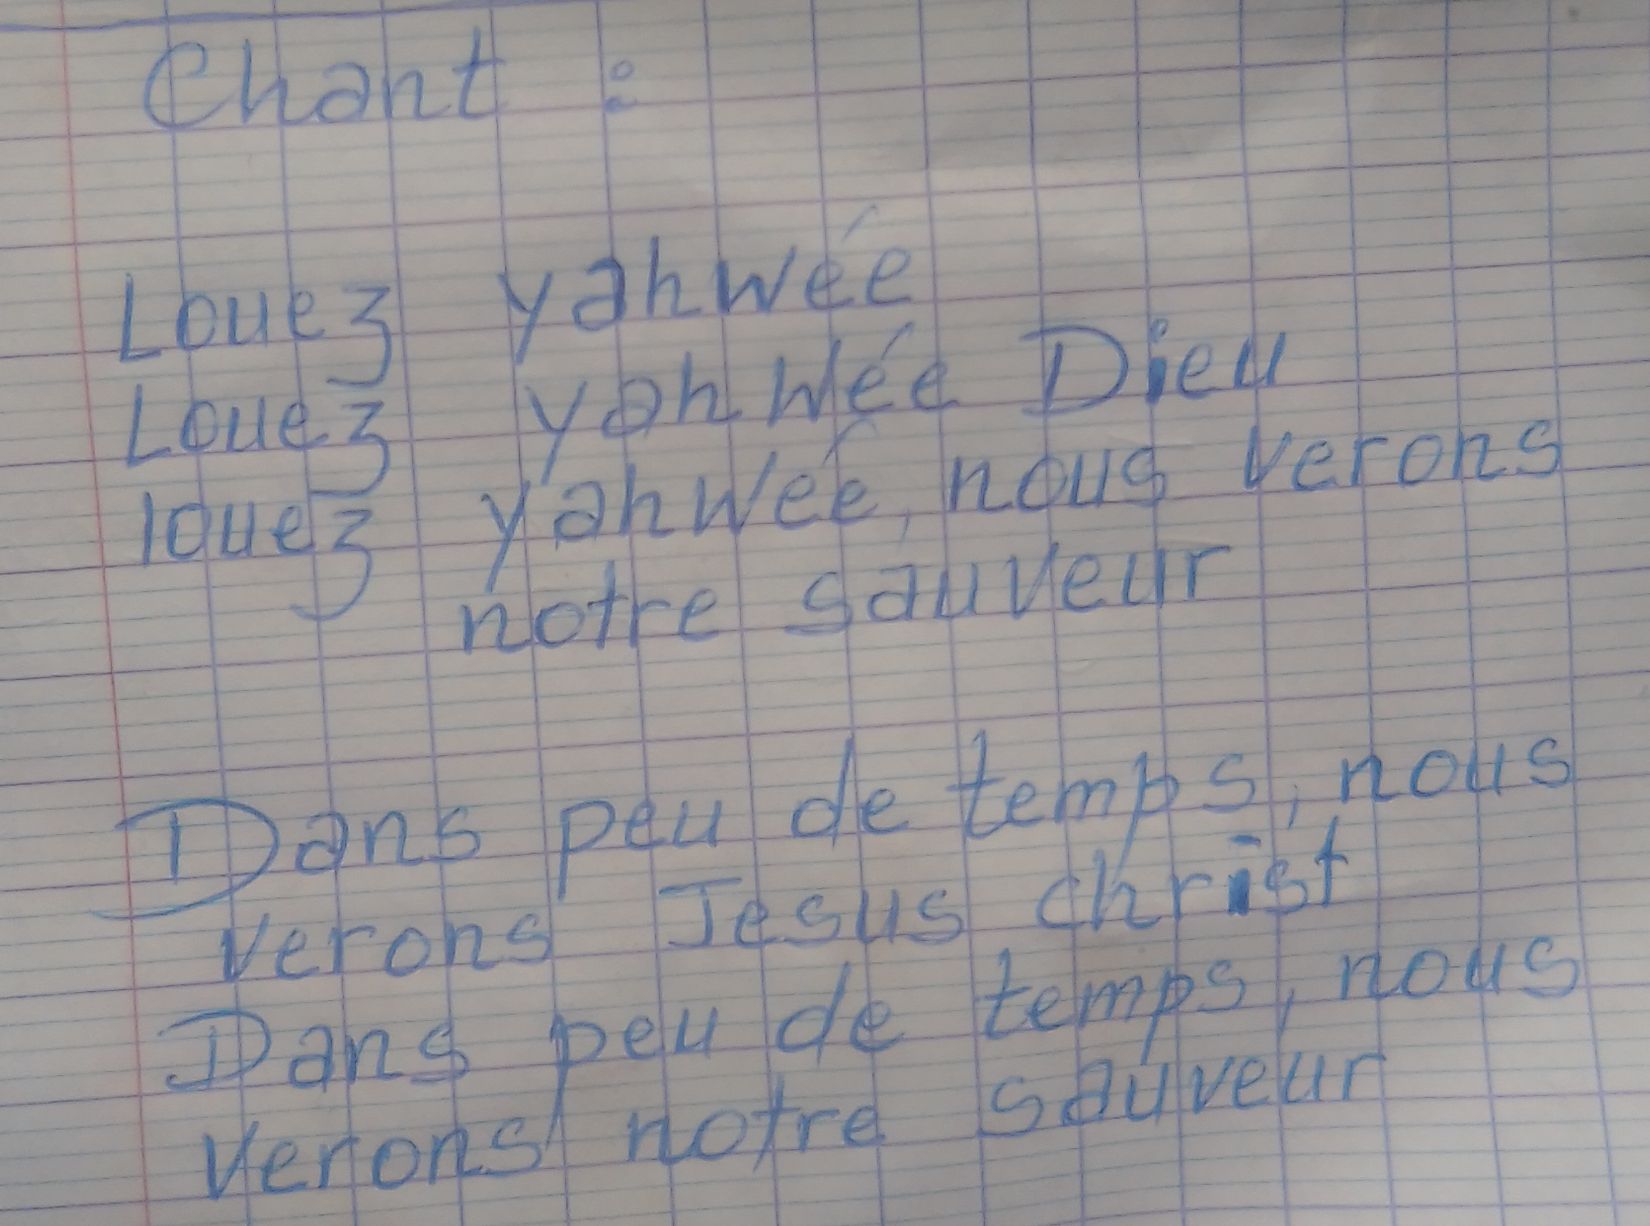 Chant :
Louez yahwée
Louez yahwée Dieu
louez yahwée, nous verons
notre sauveur
Dans peu de temps, nous
verons Jesus christ
Dans peu de temps, nous
verons notre sauveur